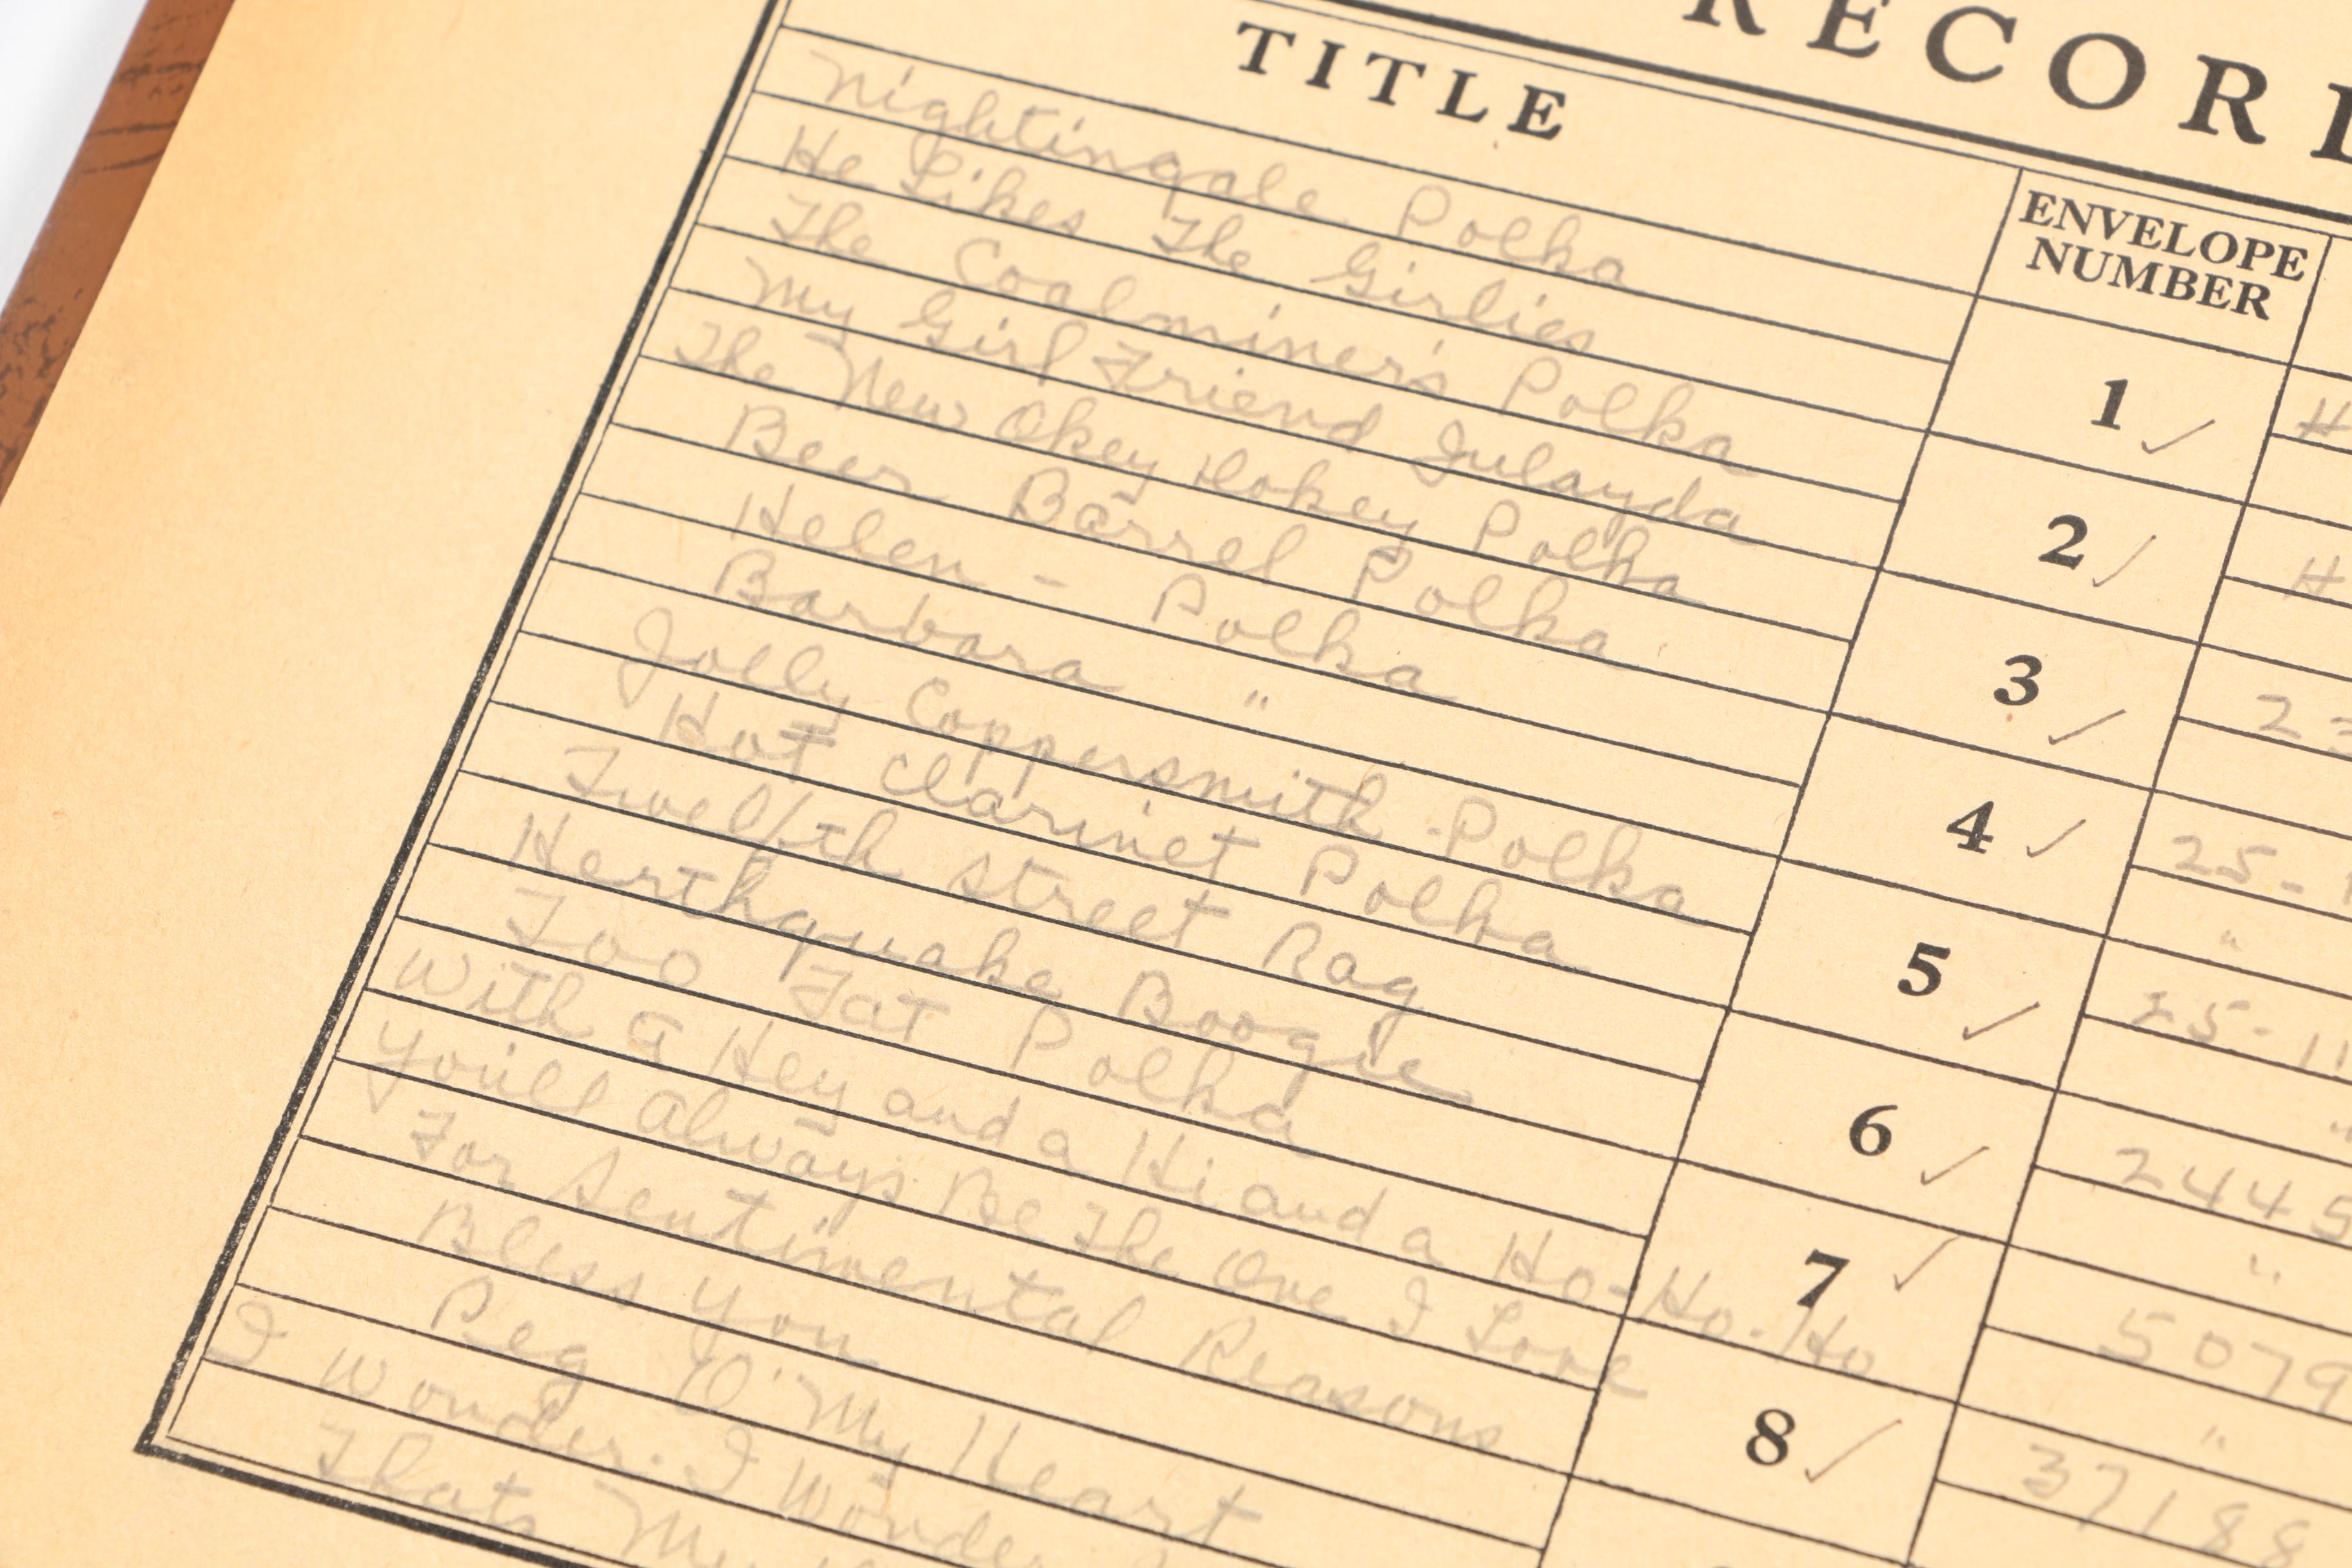 RECORD
TITLE
ENVELOPE
NUMBER
Nightingale Polka
He Likes The Girlies
1 ✓
The Coalminer's Polka
My Girl Friend Julayda
2 ✓
The New Okey Dokey Polka
Beer Barrel Polka
3 ✓
23
Helen - Polka
Barbara "
4 ✓
25-
"
Jolly Coppersmith - Polka
Hot Clarinet Polka
5 ✓
25-11
"
Twelfth Street Rag
Herthquake Boogie
6 ✓
2445
"
Too Fat Polka
With a Hey and a Hi and a Ho-Ho-Ho
7 ✓
5079
"
You'll Always Be The One I Love
For Sentimental Reasons
8 ✓
37188
Bless You
Peg O' My Heart
I Wonder. I Wonder
Thats My